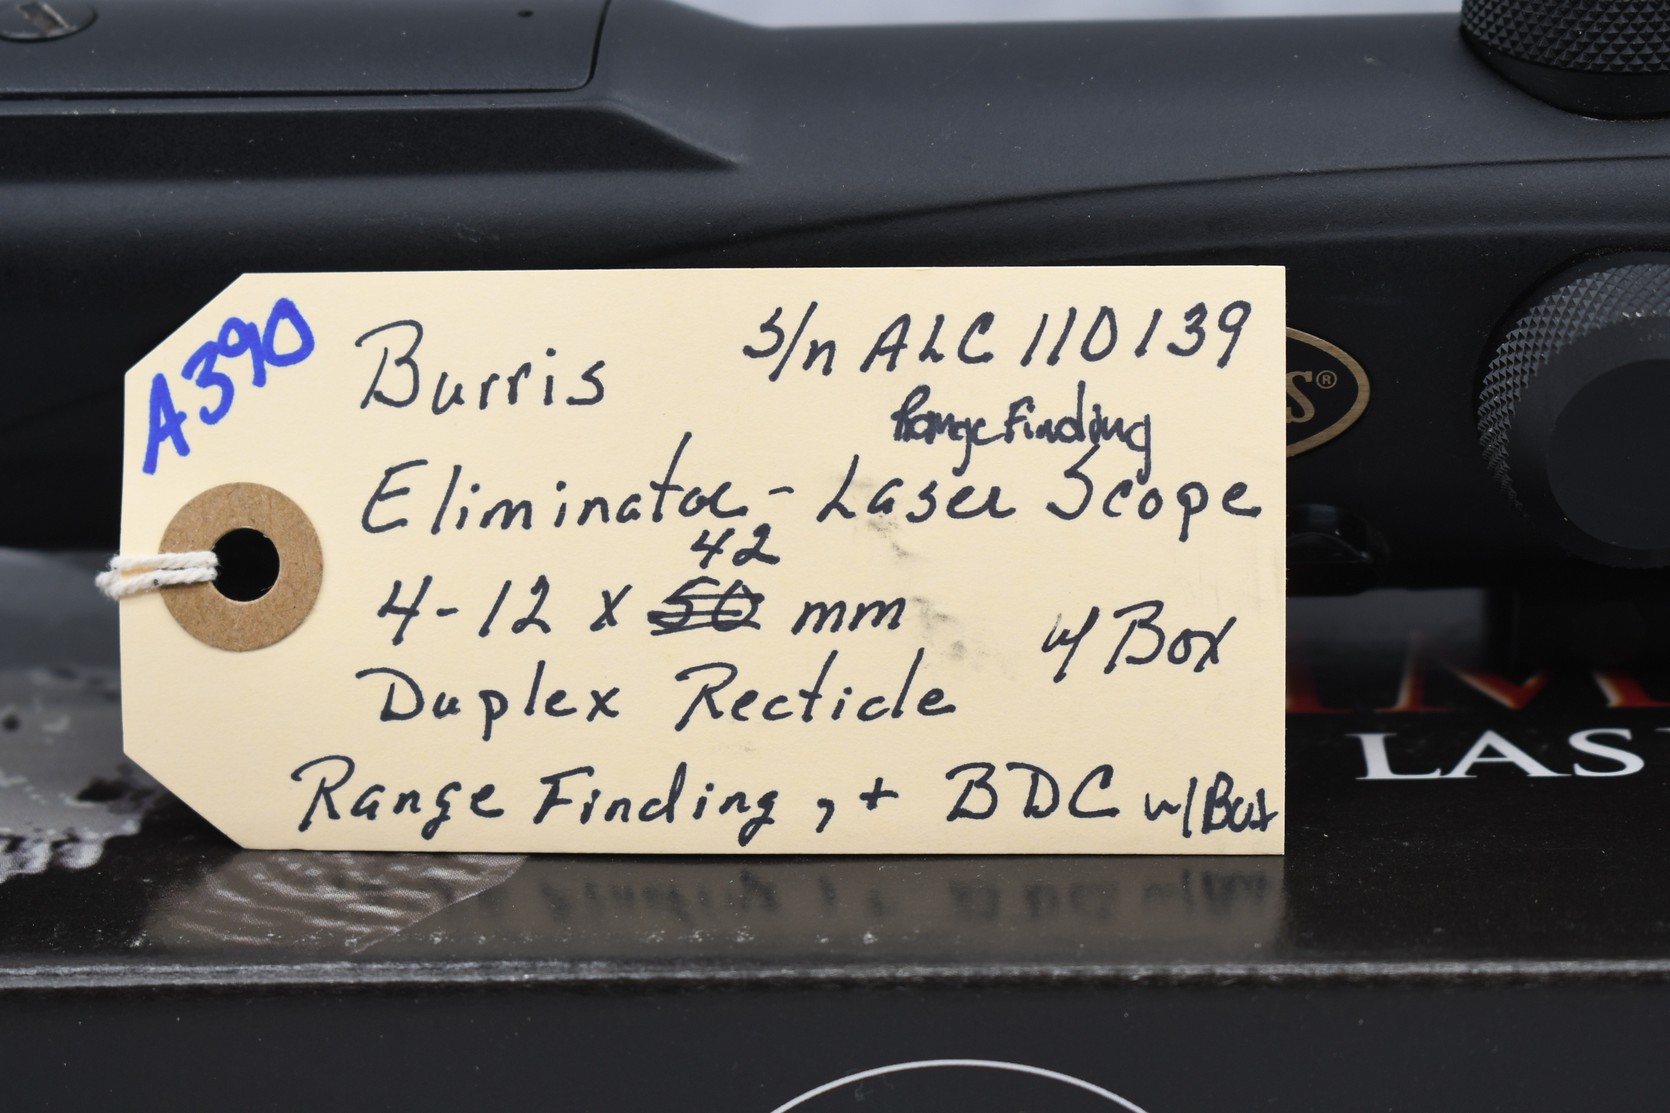 A390
Burris s/n ALC 110139
Range Finding
Eliminator - Laser Scope
42
4-12 x 50 mm w/ Box
Duplex Recticle
Range Finding, + BDC w/Box
S®
LAS